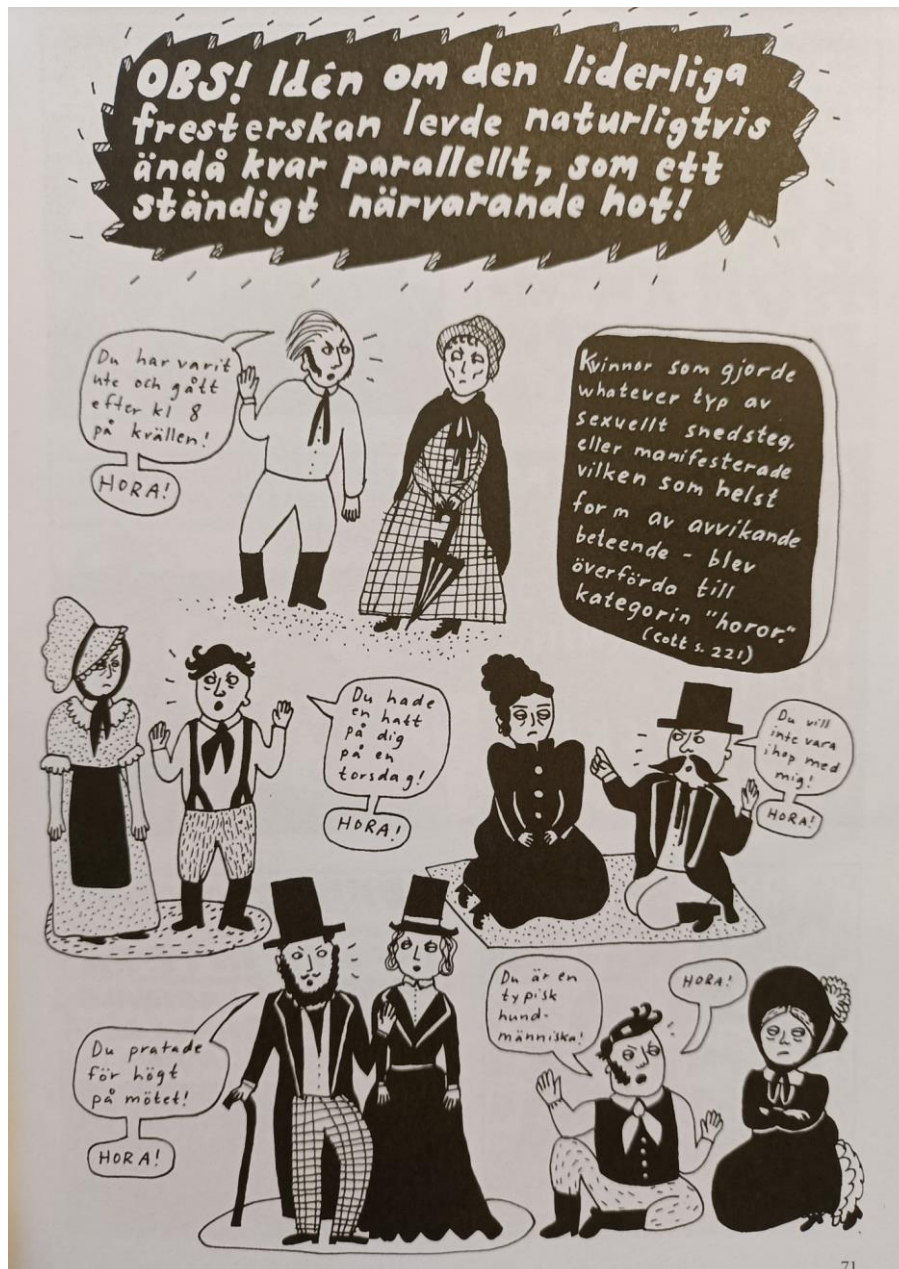 OBS! Idén om den liderliga
fresterskan levde naturligtvis
ändå kvar parallellt, som ett
ständigt närvarande hot!
Du har varit
ute och gått
efter kl 8
på kvällen!
HORA!
Kvinnor som gjorde
whatever typ av
sexuellt snedsteg,
eller manifesterade
vilken som helst
form av avvikande
beteende - blev
överförda till
kategorin "horor."
(Cott s. 221)
Du hade
en hatt
på dig
på en
torsdag!
HORA!
Du vill
inte vara
ihop med
mig!
HORA!
Du pratade
för högt
på mötet!
HORA!
Du är en
typisk
hund-
människa!
HORA!
71